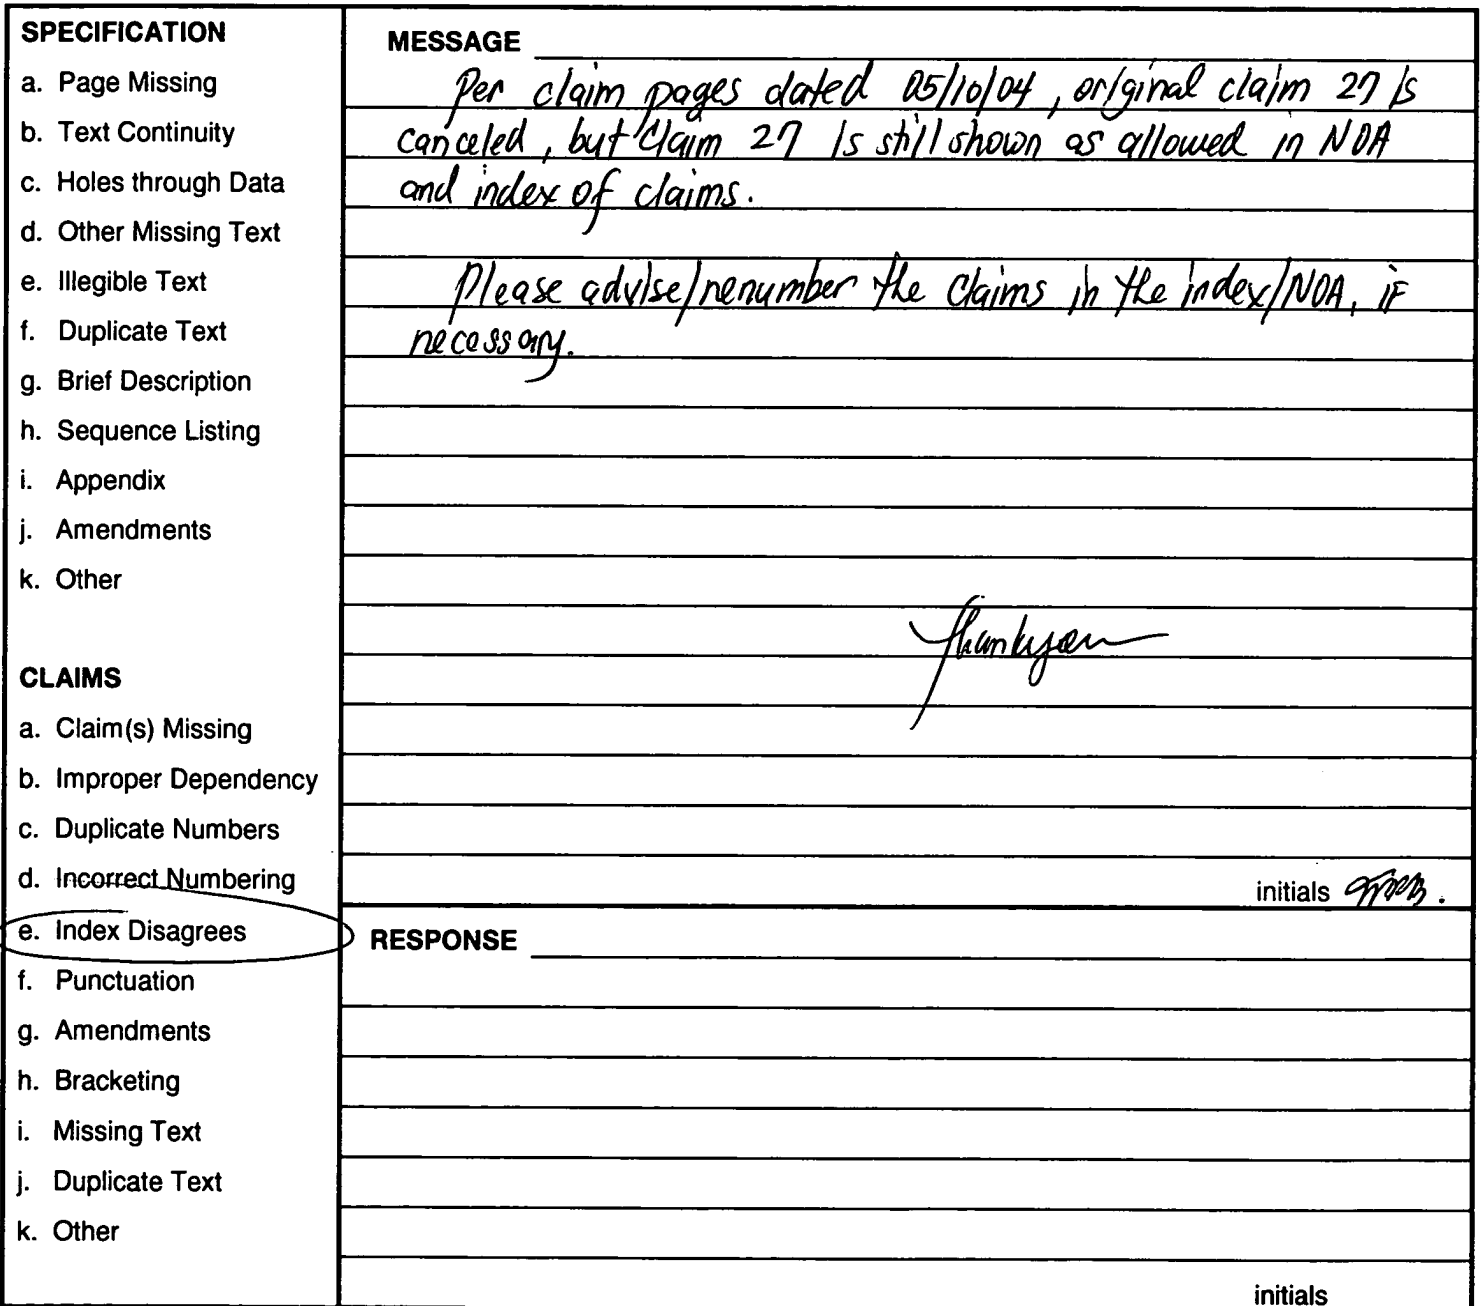 SPECIFICATION
a. Page Missing
b. Text Continuity
c. Holes through Data
d. Other Missing Text
e. Illegible Text
f. Duplicate Text
g. Brief Description
h. Sequence Listing
i. Appendix
j. Amendments
k. Other
CLAIMS
a. Claim(s) Missing
b. Improper Dependency
c. Duplicate Numbers
d. Incorrect Numbering
e. Index Disagrees
f. Punctuation
g. Amendments
h. Bracketing
i. Missing Text
j. Duplicate Text
k. Other
MESSAGE
Per claim pages dated 05/10/04, original claim 27 is
canceled, but claim 27 is still shown as allowed in NOA
and index of claims.
Please advise/renumber the claims in the index/NOA, if
necessary.
Thank you
initials
RESPONSE
initials